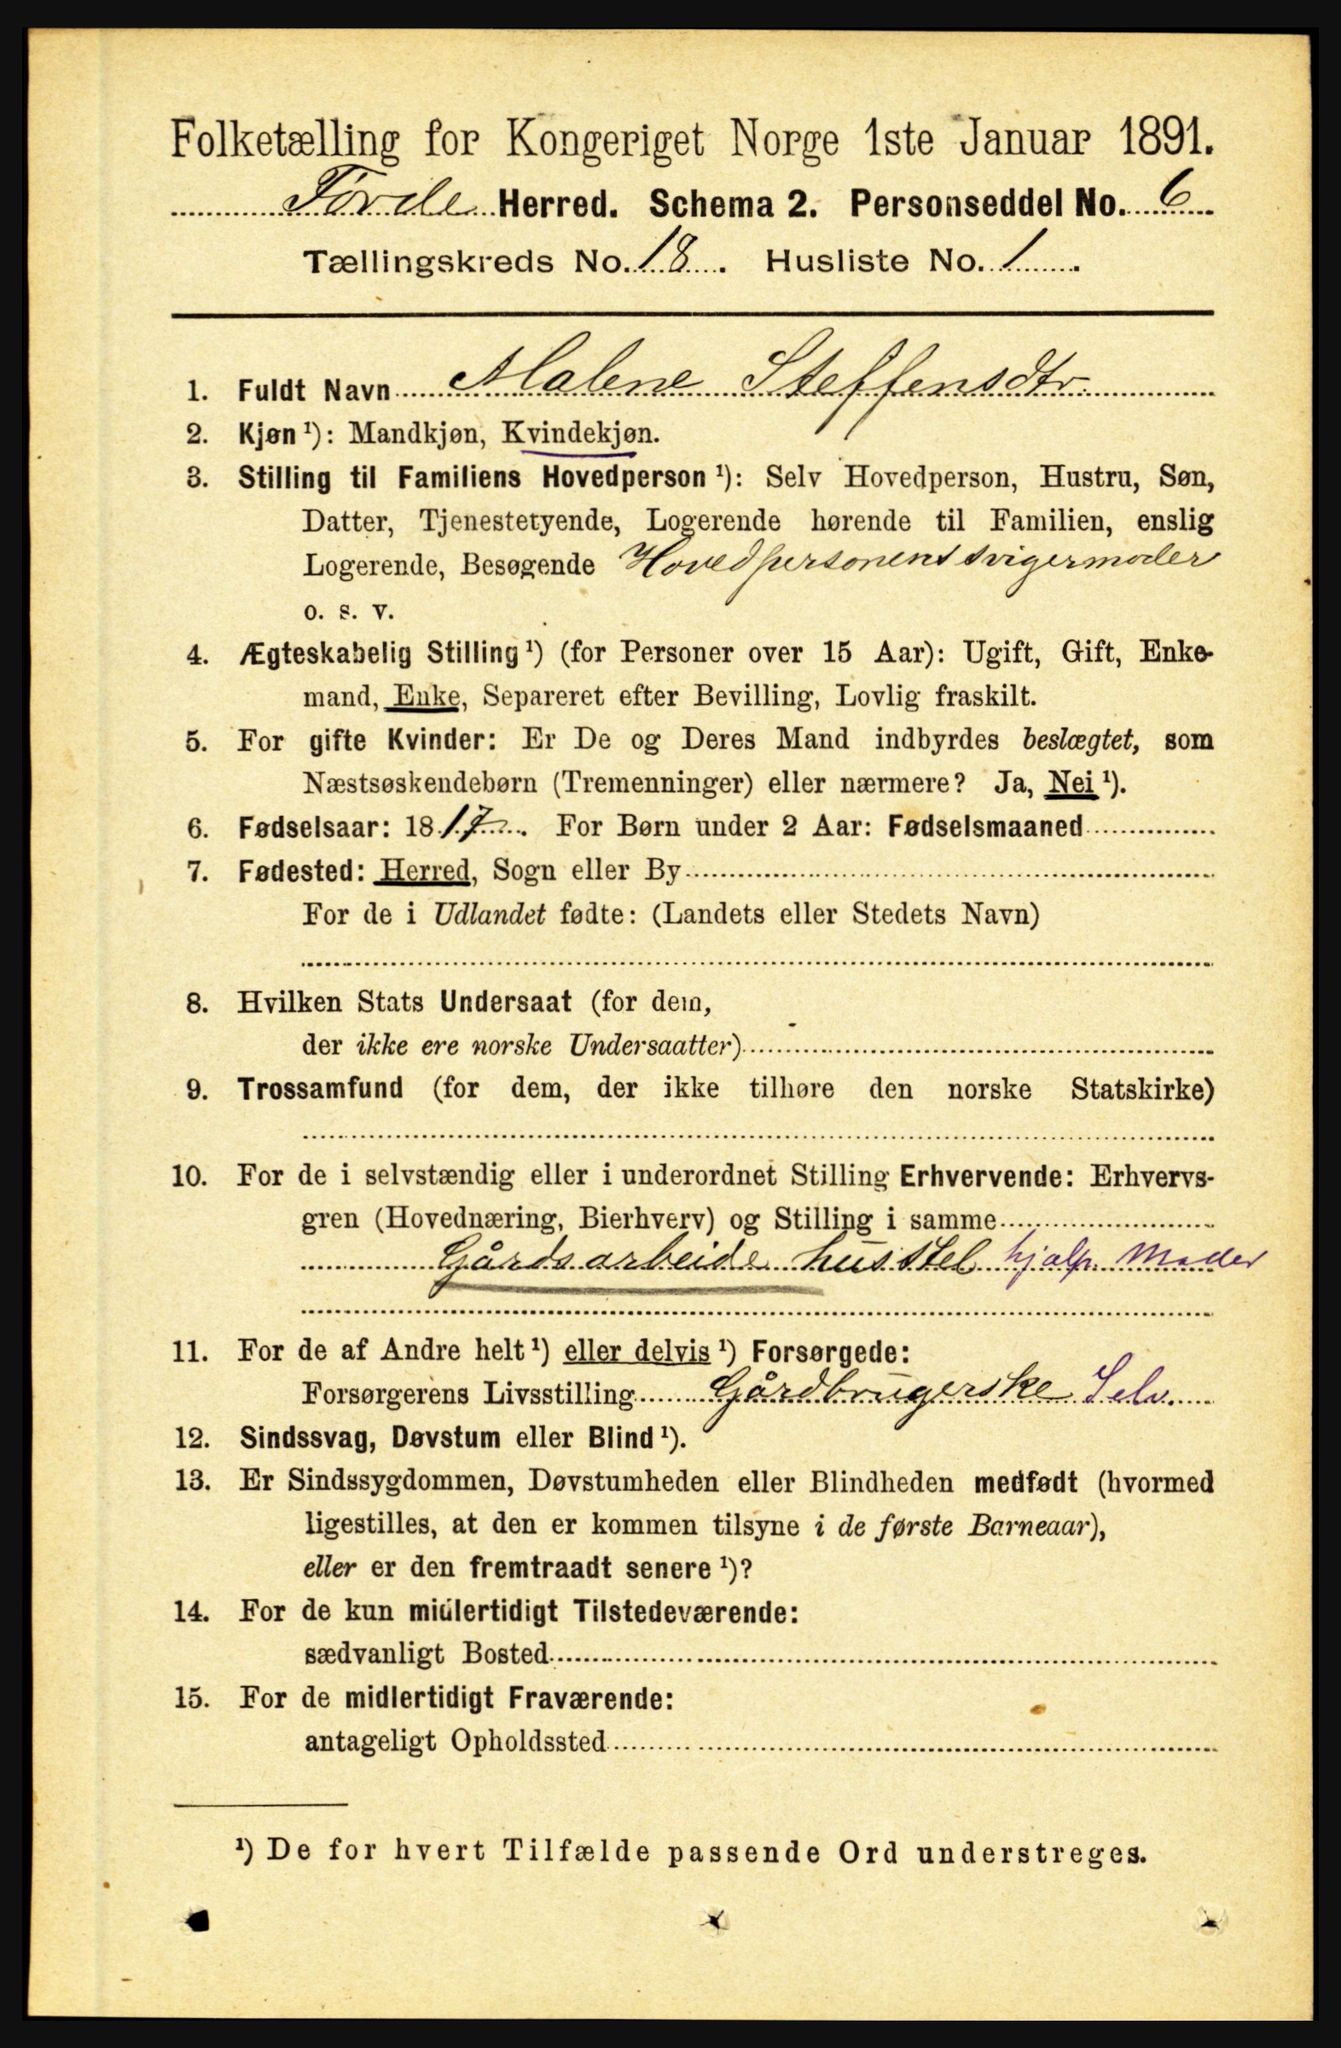 Folketælling for Kongeriget Norge 1ste Januar 1891.
Førde Herred. Schema 2. Personseddel No. 6
Tællingskreds No. 18. Husliste No. 1.
1. Fuldt Navn Malene Steffensdtr.
2. Kjøn ¹): Mandkjøn, Kvindekjøn.
3. Stilling til Familiens Hovedperson ¹): Selv Hovedperson, Hustru, Søn,
Datter, Tjenestetyende, Logerende hørende til Familien, enslig
Logerende, Besøgende Hovedpersonens svigermoder
o. s. v.
4. Ægteskabelig Stilling ¹) (for Personer over 15 Aar): Ugift, Gift, Enke-
mand, Enke, Separeret efter Bevilling, Lovlig fraskilt.
5. For gifte Kvinder: Er De og Deres Mand indbyrdes beslægtet, som
Næstsøskendebørn (Tremenninger) eller nærmere? Ja, Nei ¹).
6. Fødselsaar: 1817. For Børn under 2 Aar: Fødselsmaaned
7. Fødested: Herred, Sogn eller By
For de i Udlandet fødte: (Landets eller Stedets Navn)
8. Hvilken Stats Undersaat (for dem,
der ikke ere norske Undersaatter)
9. Trossamfund (for dem, der ikke tilhøre den norske Statskirke)
10. For de i selvstændig eller i underordnet Stilling Erhvervende: Erhvervs-
gren (Hovednæring, Bierhverv) og Stilling i samme
Gårdsarbeide husstel hjalp. Moder
11. For de af Andre helt ¹) eller delvis ¹) Forsørgede:
Forsørgerens Livsstilling Gårdbrugerske Selv.
12. Sindssvag, Døvstum eller Blind ¹).
13. Er Sindssygdommen, Døvstumheden eller Blindheden medfødt (hvormed
ligestilles, at den er kommen tilsyne i de første Barneaar),
eller er den fremtraadt senere ¹)?
14. For de kun midlertidigt Tilstedeværende:
sædvanligt Bosted
15. For de midlertidigt Fraværende:
antageligt Opholdssted
¹) De for hvert Tilfælde passende Ord understreges.